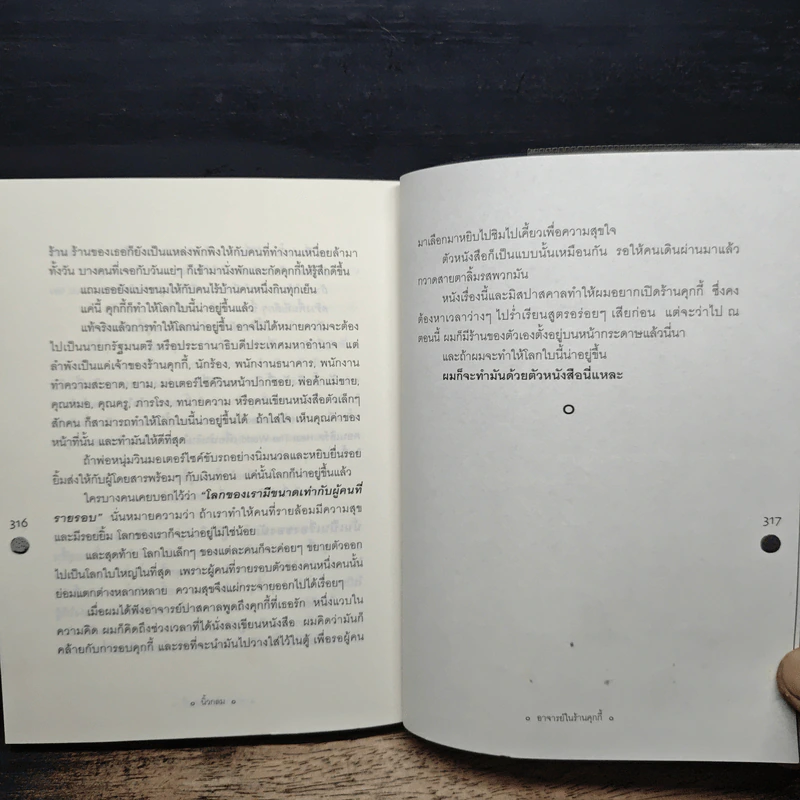 ร้าน ร้านของเธอก็ยังเป็นแหล่งพักพิงให้กับคนที่ทำงานเหนื่อยล้ามา
ทั้งวัน บางคนที่เจอกับวันแย่ๆ ก็เข้ามานั่งพักและกัดคุกกี้ให้รู้สึกดีขึ้น
แถมเธอยังแบ่งขนมให้กับคนไร้บ้านคนหนึ่งกินทุกเย็น
แค่นี้ คุกกี้ก็ทำให้โลกใบนี้น่าอยู่ขึ้นแล้ว
แท้จริงแล้วการทำให้โลกน่าอยู่ขึ้น อาจไม่ได้หมายความจะต้อง
ไปเป็นนายกรัฐมนตรี หรือประธานาธิบดีประเทศมหาอำนาจ แต่
ลำพังเป็นแค่เจ้าของร้านคุกกี้, นักร้อง, พนักงานธนาคาร, พนักงาน
ทำความสะอาด, ยาม, มอเตอร์ไซค์วินหน้าปากซอย, พ่อค้าแม่ขาย,
คุณหมอ, คุณครู, ภารโรง, ทนายความ หรือคนเขียนหนังสือตัวเล็กๆ
สักคน ก็สามารถทำให้โลกใบนี้น่าอยู่ขึ้นได้ ถ้าใส่ใจ เห็นคุณค่าของ
หน้าที่นั้น และทำมันให้ดีที่สุด
ถ้าพ่อหนุ่มวินมอเตอร์ไซค์ขับรถอย่างนิ่มนวลและหยิบยื่นรอย
ยิ้มส่งให้กับผู้โดยสารพร้อมๆ กับเงินทอน แค่นั้นโลกก็น่าอยู่ขึ้นแล้ว
ใครบางคนเคยบอกไว้ว่า "โลกของเรามีขนาดเท่ากับผู้คนที่
รายรอบ" นั่นหมายความว่า ถ้าเราทำให้คนที่รายล้อมมีความสุข
และมีรอยยิ้ม โลกของเราก็จะน่าอยู่ไม่ใช่น้อย
และสุดท้าย โลกใบเล็กๆ ของแต่ละคนก็จะค่อยๆ ขยายตัวออก
ไปเป็นโลกใบใหญ่ในที่สุด เพราะผู้คนที่รายรอบตัวของคนหนึ่งคนนั้น
ย่อมแตกต่างหลากหลาย ความสุขจึงแผ่กระจายออกไปได้เรื่อยๆ
เมื่อผมได้ฟังอาจารย์ปาสคาลพูดถึงคุกกี้ที่เธอรัก หนึ่งแวบใน
ความคิด ผมก็คิดถึงช่วงเวลาที่ได้นั่งลงเขียนหนังสือ ผมคิดว่ามันก็
คล้ายกับการอบคุกกี้ และรอที่จะนำมันไปวางใส่ไว้ในตู้ เพื่อรอผู้คน
316
๑ นิ้วกลม ๑
มาเลือกมาหยิบไปชิมไปเคี้ยวเพื่อความสุขใจ
ตัวหนังสือก็เป็นแบบนั้นเหมือนกัน รอให้คนเดินผ่านมาแล้ว
กวาดสายตาลิ้มรสพวกมัน
หนังเรื่องนี้และมิสปาสคาลทำให้ผมอยากเปิดร้านคุกกี้ ซึ่งคง
ต้องหาเวลาว่างๆ ไปร่ำเรียนสูตรอร่อยๆ เสียก่อน แต่จะว่าไป ณ
ตอนนี้ ผมก็มีร้านของตัวเองตั้งอยู่บนหน้ากระดาษแล้วนี่นา
และถ้าผมจะทำให้โลกใบนี้น่าอยู่ขึ้น
ผมก็จะทำมันด้วยตัวหนังสือนี่แหละ
317
๑ อาจารย์ในร้านคุกกี้ ๑